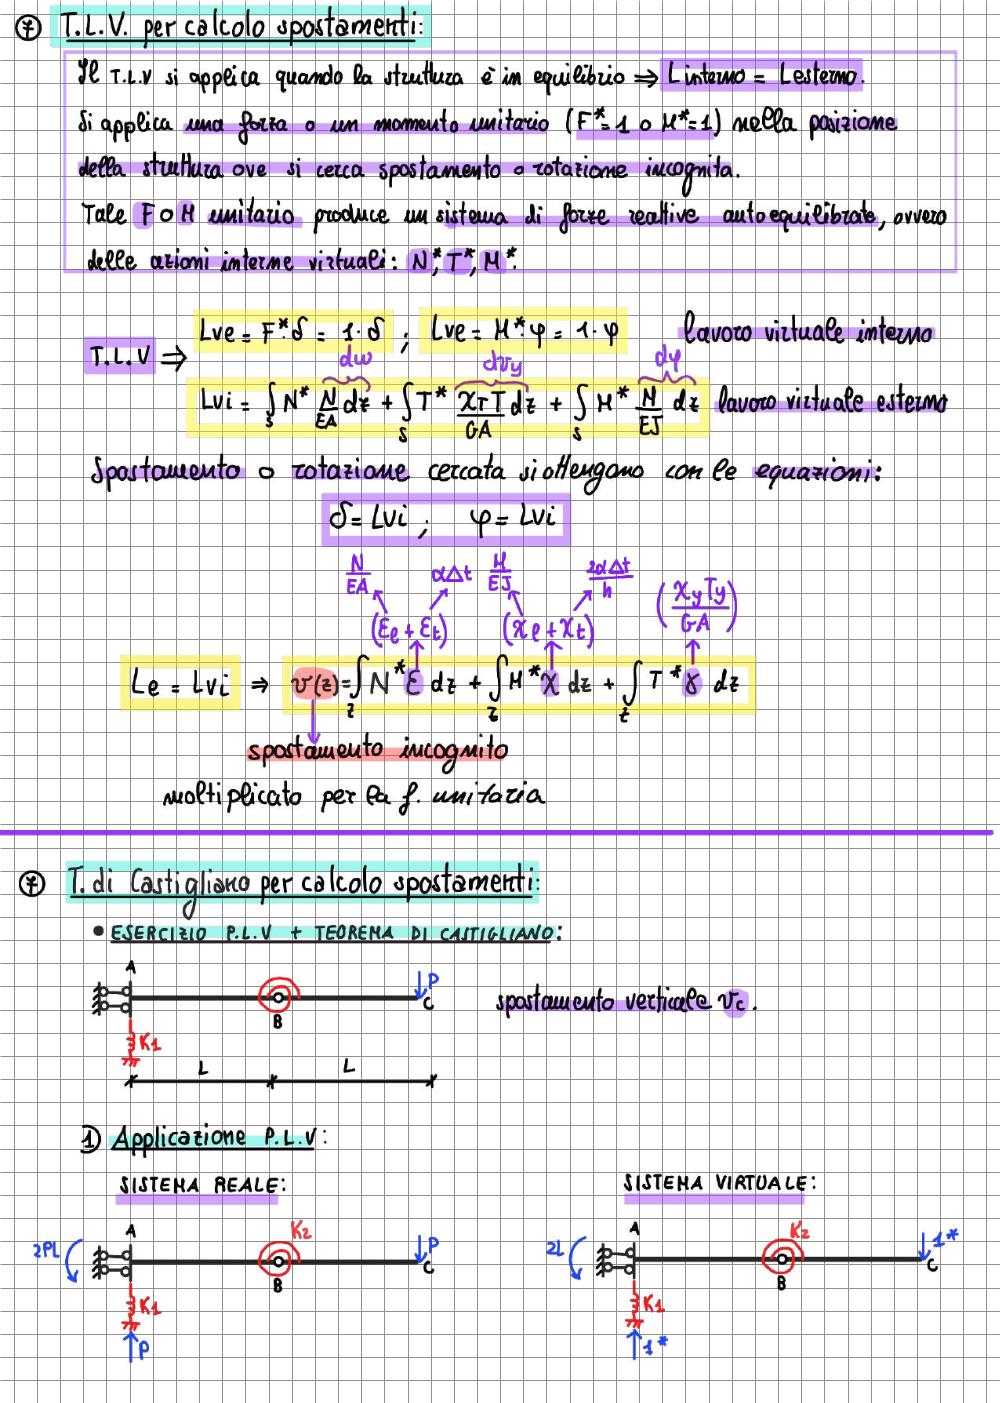 ⑦ T.L.V. per calcolo spostamenti:
Il T.L.V si applica quando la struttura è in equilibrio ⇒ Linterno = Lesterno.
Si applica una forza o un momento unitario (F*=1 o M*=1) nella posizione
della struttura ove si cerca spostamento o rotazione incognita.
Tale F o M unitario produce un sistema di forze reattive autoequilibrate, ovvero
delle azioni interne virtuali: N*, T*, M*.
T.L.V ⇒ Lve = F*·δ = 1·δ ; Lve = M*·φ = 1·φ lavoro virtuale interno
dw dvy dφ
Lvi = ∫s N* N/EA dz + ∫s T* χT T/GA dz + ∫s M* M/EJ dz lavoro virtuale esterno
Spostamento o rotazione cercata si ottengono con le equazioni:
δ = Lvi ; φ = Lvi
N/EA αΔt M/EJ 2αΔt/h (χy Ty/GA)
(εe + εt) (χe + χt)
Le = Lvi ⇒ v(z) = ∫z N* ε dz + ∫z M* χ dz + ∫z T* γ dz
spostamento incognito
moltiplicato per la f. unitaria
⑦ T. di Castigliano per calcolo spostamenti:
• ESERCIZIO P.L.V + TEOREMA DI CASTIGLIANO:
A B P C K1
spostamento verticale vc.
L L
① Applicazione P.L.V:
SISTEMA REALE: SISTEMA VIRTUALE:
2PL A K2 B P C K1 P
2L A K2 B 1* C K1 1*